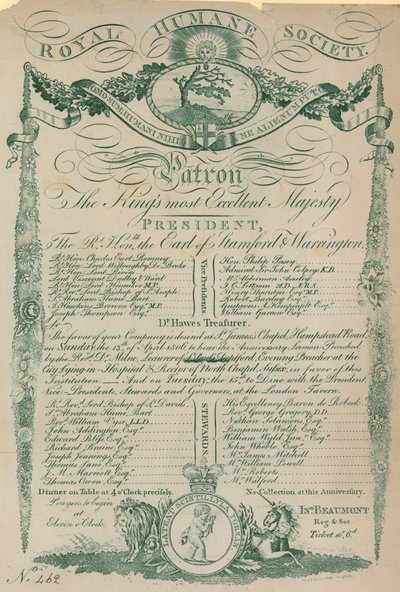 ROYAL HUMANE SOCIETY.
HOMO SUM; HUMANI NIHIL A ME ALIENUM PUTO
Patron
The King's most Excellent Majesty
PRESIDENT,
The Rt. Honble. the Earl of Stamford & Warrington.
Rt. Hon. Charles Earl Romney
Rt. Hon. Lord Willoughby de Broke
Rt. Hon. Lord Rivers
Lord Viscount Dudley & Ward
Rt. Hon. Lord Henniker M.P.
Rt. Revd. Lord Bishop of St. Asaph
Sr. Abraham Hume Bart.
I. Hawkins Browne Esqr. M.P.
Joseph Thompson Esqr.
Vice Presidents.
Hon. Philip Pusey
Admiral Sir John Colpoys K.B.
Mr. Alderman Ansley
I. C. Lettsom M.D. F.R.S.
Henry Thornton Esqr. M.P.
Robert Barclay Esqr.
Gustavus A. Kempenfelt Esqr.
William Garrow Esqr.
Dr. Hawes Treasurer.
The favor of your Company is desired at St. James's Chapel, Hampstead Road
on Sunday, the 13th of April 1806, to hear the Anniversary Sermon Preached
by the Revd. Dr. Milne, Lecturer of Deptford, Evening Preacher at the
City Lying-in Hospital & Rector of North Chapel, Sussex, in favor of this
Institution And on Tuesday, the 15th, to Dine with the President,
Vice-Presidents, Stewards and Governors, at the London Tavern
Rt. Revd. Lord Bishop of St. Davids
Sr. Abraham Hume, Bart.
Revd. William Vyse, L.L.D.
John Addington, Esqr.
Edward Bliss, Esqr.
Richard Brown, Esqr.
Joseph Jennings, Esqr.
Thomas Lane, Esqr.
F. M. Marriott, Esqr.
Thomas Owen, Esqr.
STEWARDS.
His Excellency Baron de Robeck.
Revd. George Gregory, D.D.
Nathan Solomons, Esqr.
Benjamin Walsh, Esqr.
William Wyld Junr. Esqr.
John Whittle, Esqr.
Mr. James Mitchell
Mr. William Powell
Mr. Roberts
Mr. Walford
Dinner on Table at 4 o'Clock precisely.
No Collection at this Anniversary.
Prayers to begin
at
Eleven o'Clock.
LATEAT SCINTILLVLA FORSAN
Ino. BEAUMONT
Reg. & Sec.
Ticket 10s. 6d.
No. 462